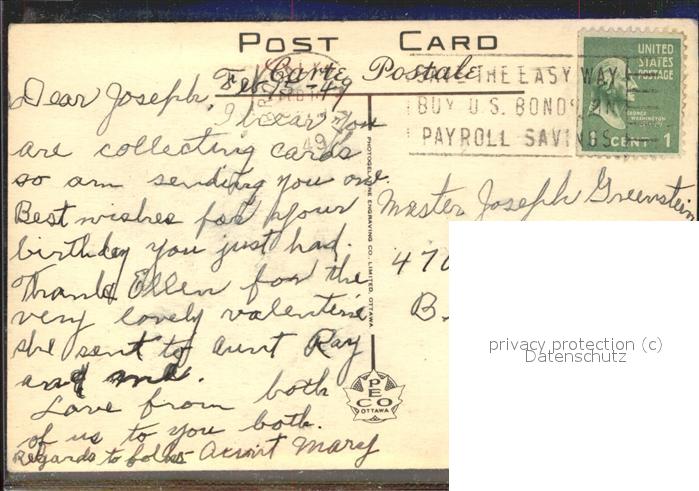 POST CARD
Carte Postale
Feb. 15-49
UNITED
STATES
POSTAGE
GEORGE
WASHINGTON
1 CENT 1
THE EASY WAY
BUY U.S. BONDS
PAYROLL SAVINGS
Dear Joseph,
I hear you
are collecting cards
so am sending you one.
Best wishes for your
birthday you just had.
Thank Ellen for the
very lovely valentine
she sent to Aunt Ray
and me.
Love from both
of us to you both.
Regards to folks Aunt Mary
PHOTOGELATINE ENGRAVING CO., LIMITED, OTTAWA
PECO
OTTAWA
Master Joseph Greenstein
470
B.
privacy protection (c)
Datenschutz